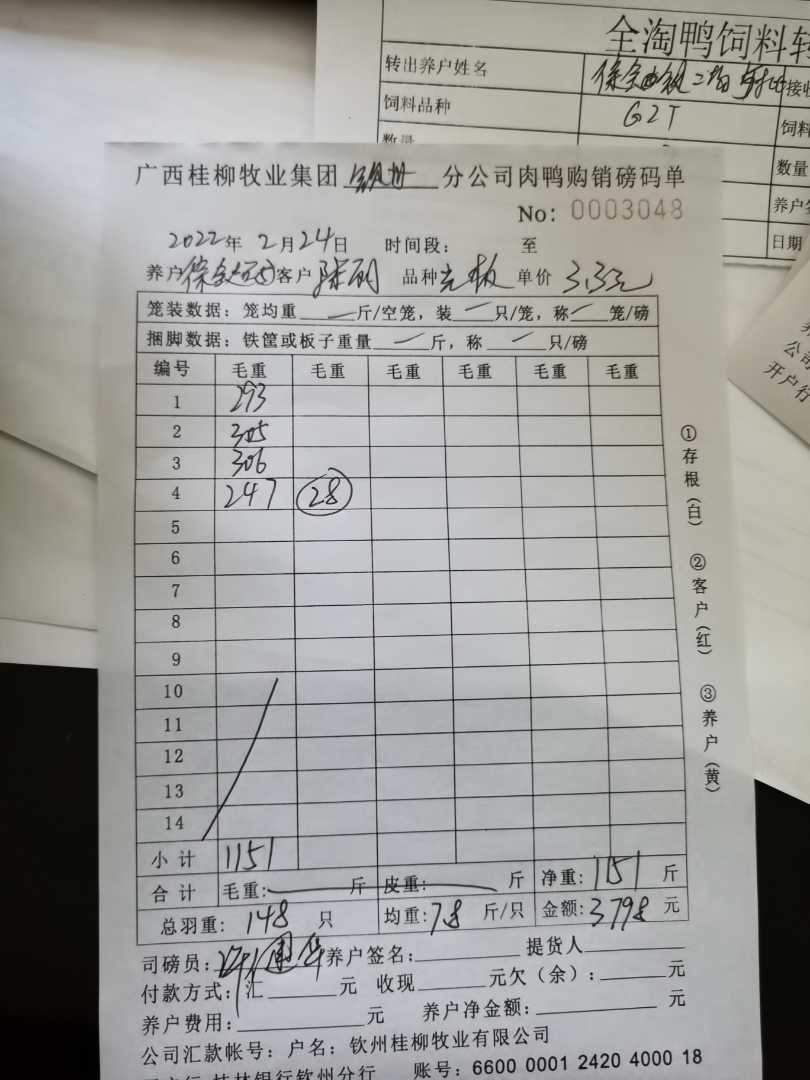 全淘鸭饲料转
转出养户姓名 接收
饲料品种 G2T 饲料
数量 数量
养户签
日期
广西桂柳牧业集团 钦州 分公司肉鸭购销磅码单
No: 0003048
2022年 2月24日 时间段: 至
养户 客户 品种 单价 3.3元
笼装数据: 笼均重 斤/空笼, 装 只/笼, 称 笼/磅
捆脚数据: 铁筐或板子重量 斤, 称 只/磅
编号 毛重 毛重 毛重 毛重 毛重 毛重
1 293
2 305
3 306
4 247 28
5
6
7
8
9
10
11
12
13
14
小计 1151
合计 毛重: 斤 皮重: 斤 净重: 1151 斤
总羽重: 148 只 均重: 7.8 斤/只 金额: 3798 元
司磅员: 养户签名: 提货人
付款方式: 汇 元 收现 元欠(余): 元
养户费用: 元 养户净金额: 元
公司汇款帐号: 户名: 钦州桂柳牧业有限公司
桂林银行钦州分行 账号: 6600 0001 2420 4000 18
①存根(白) ②客户(红) ③养户(黄)
公司
开户行